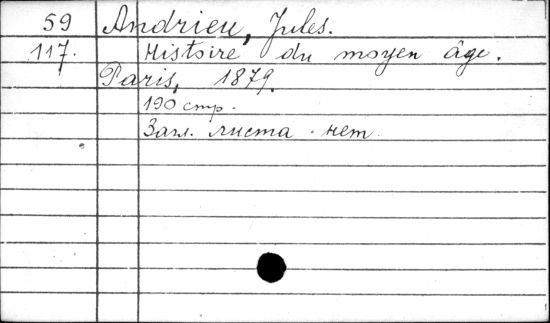 59 Andrieu, Jules.
117. Histoire du moyen âge.
Paris, 1879.
190 стр.
Загл. листа - нет.